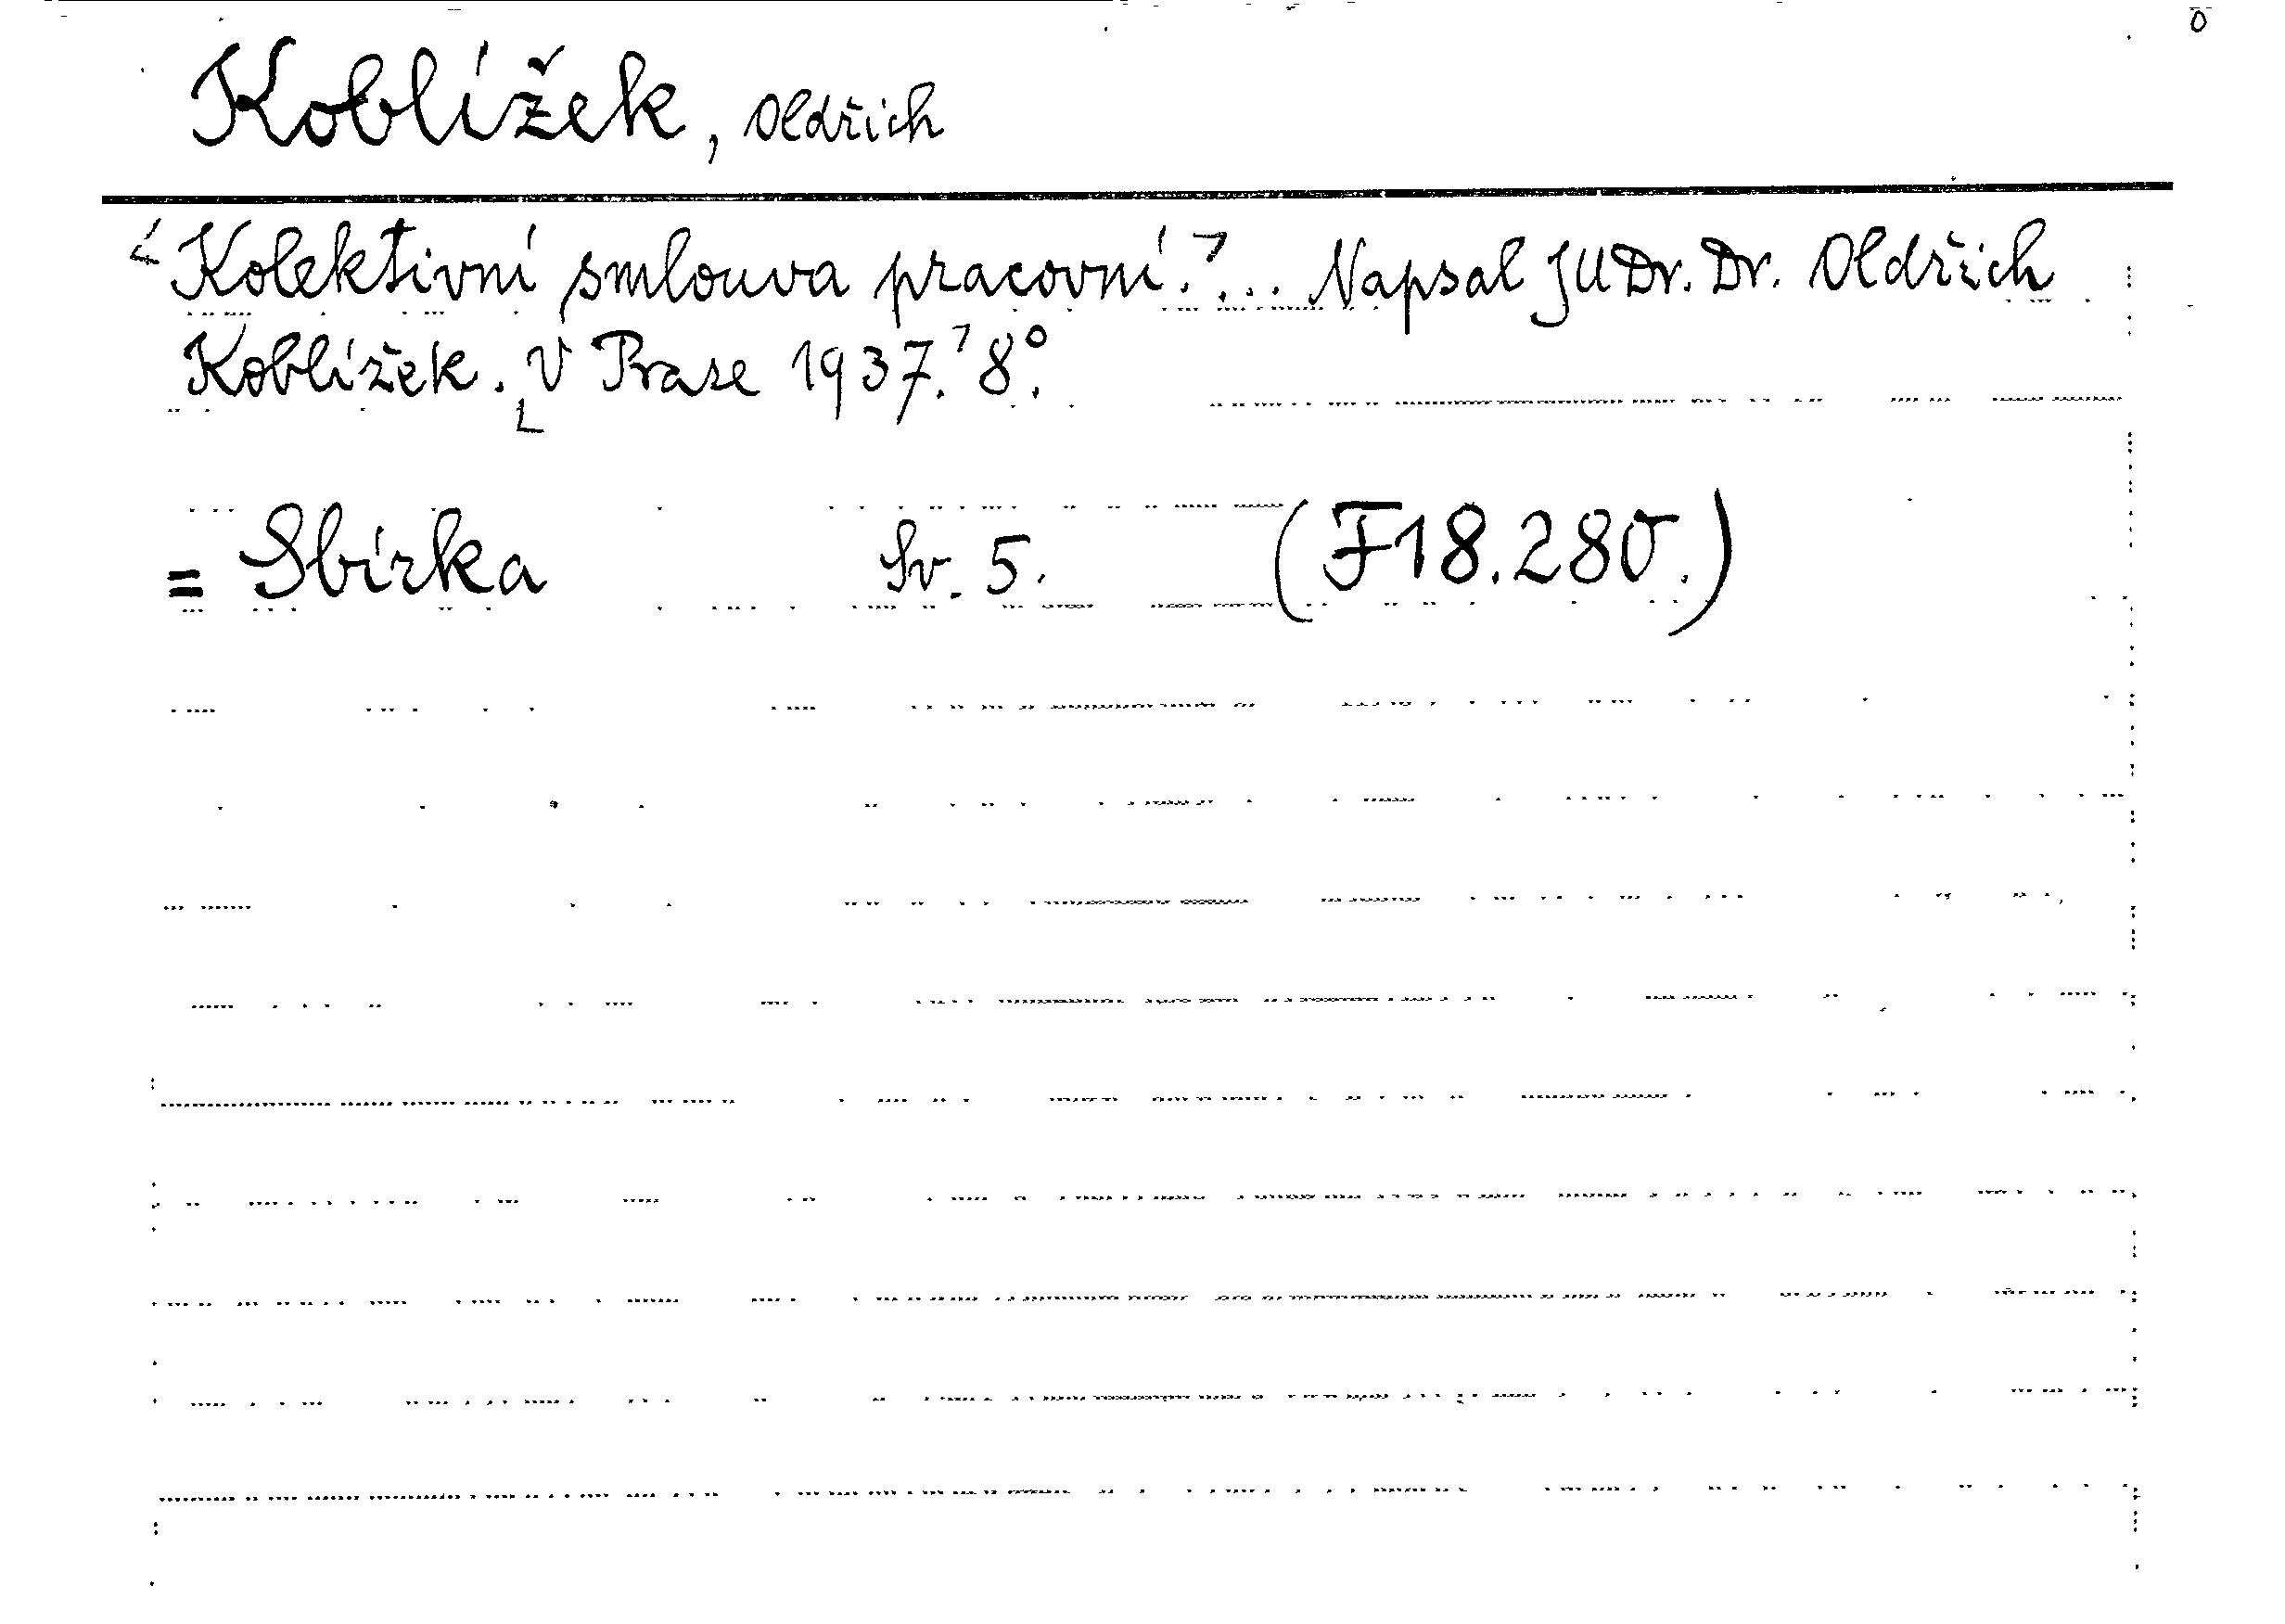 Koblížek, Oldřich
Kolektivní smlouva pracovní. ... Napsal JUDr. Dr. Oldřich
Koblížek. V Praze 1937. 8°.
= Sbírka Sv. 5. (F18.280.)